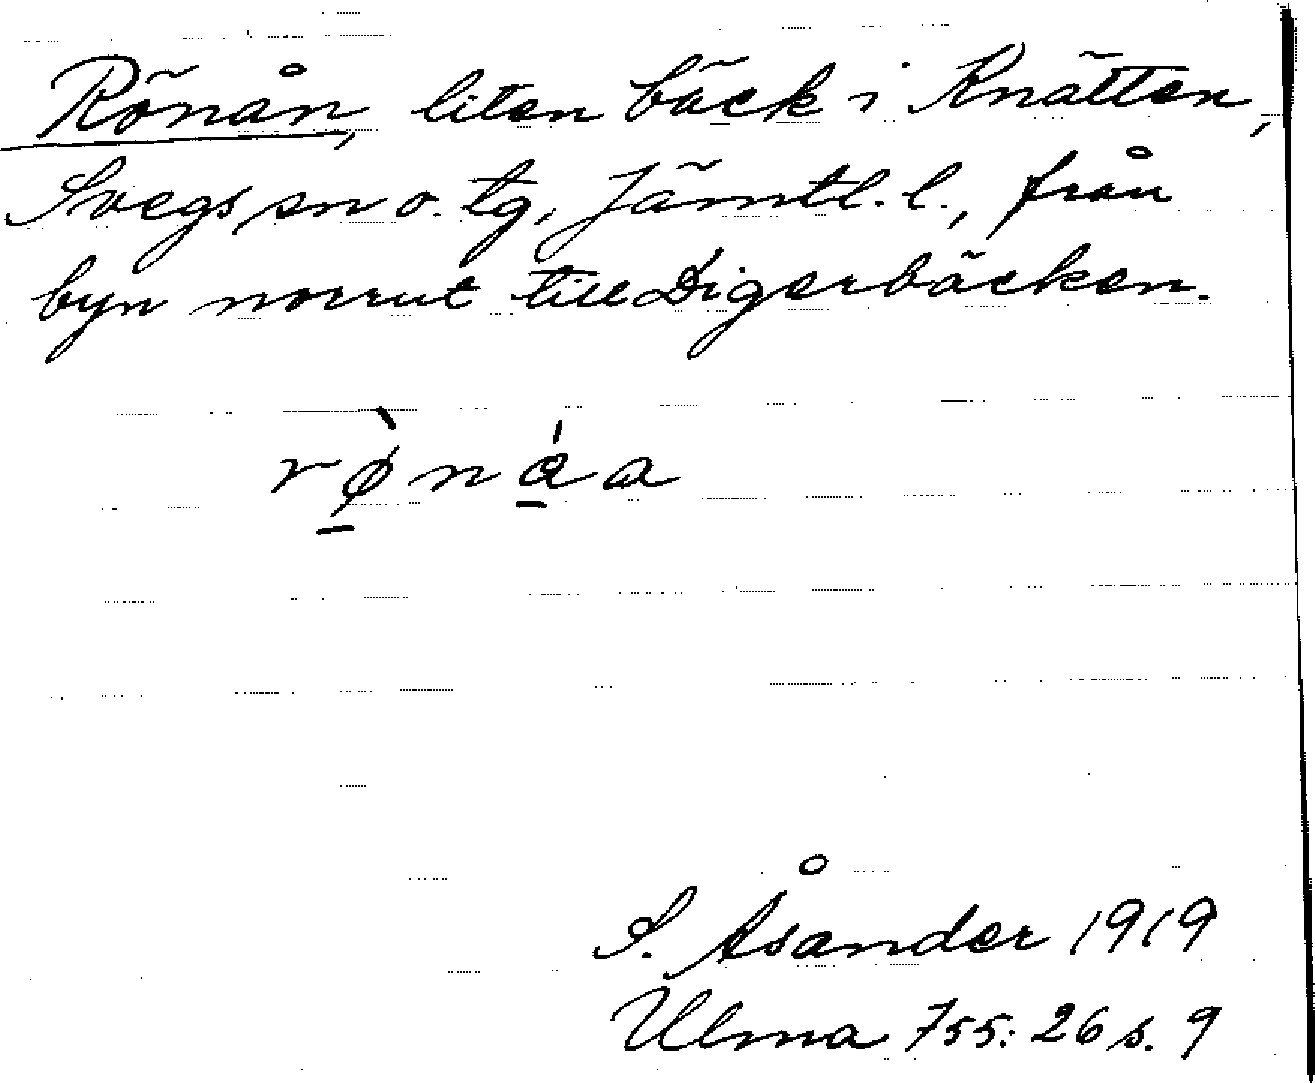 Rönån, liten bäck i Knätten,
Svegs sn o. tg, Jämtl. l., från
byn norrut till Digerbäcken.
rø̱̀ná̱a
S. Åsander 1919
Ulma 755: 26 s. 9